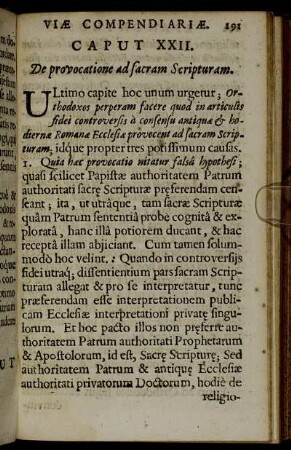 VIÆ COMPENDIARIÆ. 191
CAPUT XXII.
De provocatione ad sacram Scripturam.
ULtimo capite hoc unum urgetur; Or-
thodoxos perperam facere quod in articulis
fidei controversis à consensu antiquæ & ho-
diernæ Romanæ Ecclesiæ provocent ad sacram Scrip-
turam; idque propter tres potissimum causas.
1. Quia hæc provocatio nitatur falsâ hypothesi;
quasi scilicet Papistæ authoritatem Patrum
authoritati sacrę Scripturæ pręferendam cen-
seant; ita, ut utrâque, tam sacræ Scripturæ
quâm Patrum sententiâ probe cognitâ & ex-
ploratâ, hanc illâ potiorem ducant, & hac
receptâ illam abjiciant. Cum tamen solum-
modò hoc velint. 2 Quando in controversijs
fidei utraq; dissentientium pars sacram Scrip-
turam allegat & pro se interpretatur, tunc
præferendam esse interpretationem publi-
cam Ecclesiæ interpretationi privatę singu-
lorum. Et hoc pacto illos non pręferre au-
thoritatem Patrum authoritati Prophetarum
& Apostolorum, id est, Sacrę Scripturę; Sed
authoritatem Patrum & antiquę Ecclesiæ
authoritati privatorum Doctorum, hodiè de
religio-